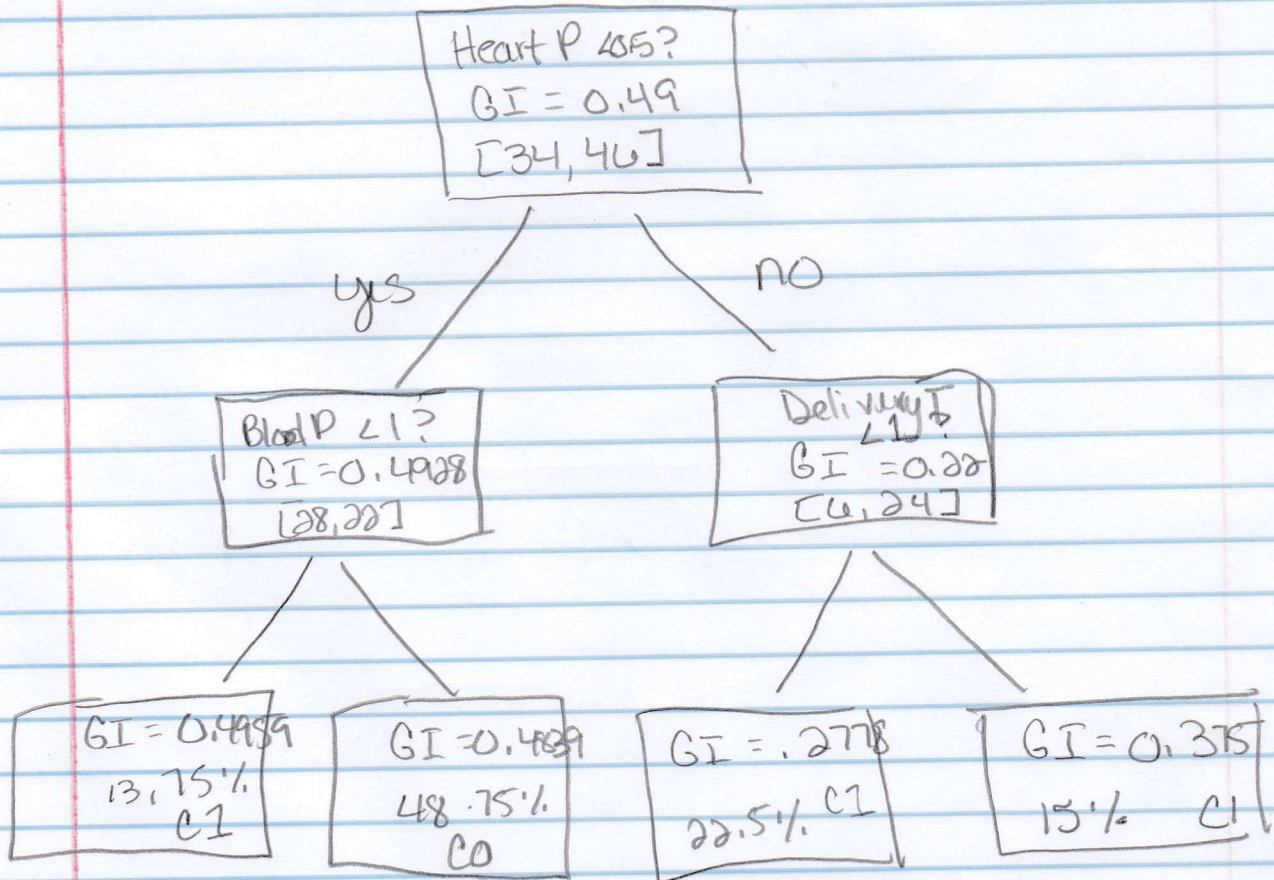 Heart P <0.5?
GI = 0.49
[34, 46]
yes
no
Blood P <1?
GI = 0.4928
[28,22]
Delivery T
<1?
GI = 0.22
[6, 24]
GI = 0.4959
13.75%
C1
GI = 0.4839
48.75%
C0
GI = .2778
22.5% C1
GI = 0.375
15% C1